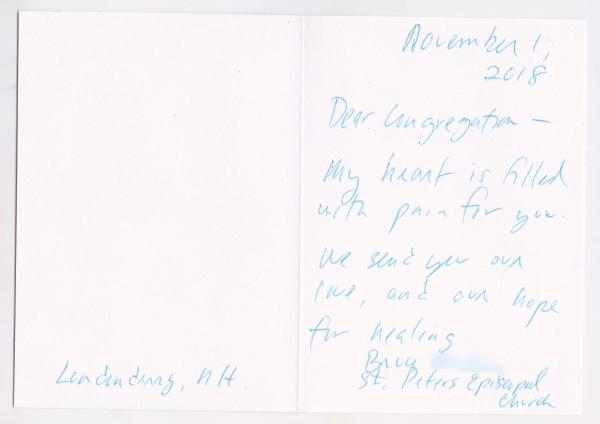 November 1,
2018
Dear Congregation —
My heart is filled
with pain for you.
We send you our
love, and our hope
for healing
Bruce
St. Peters Episcopal
Church
Londonderry, NH.